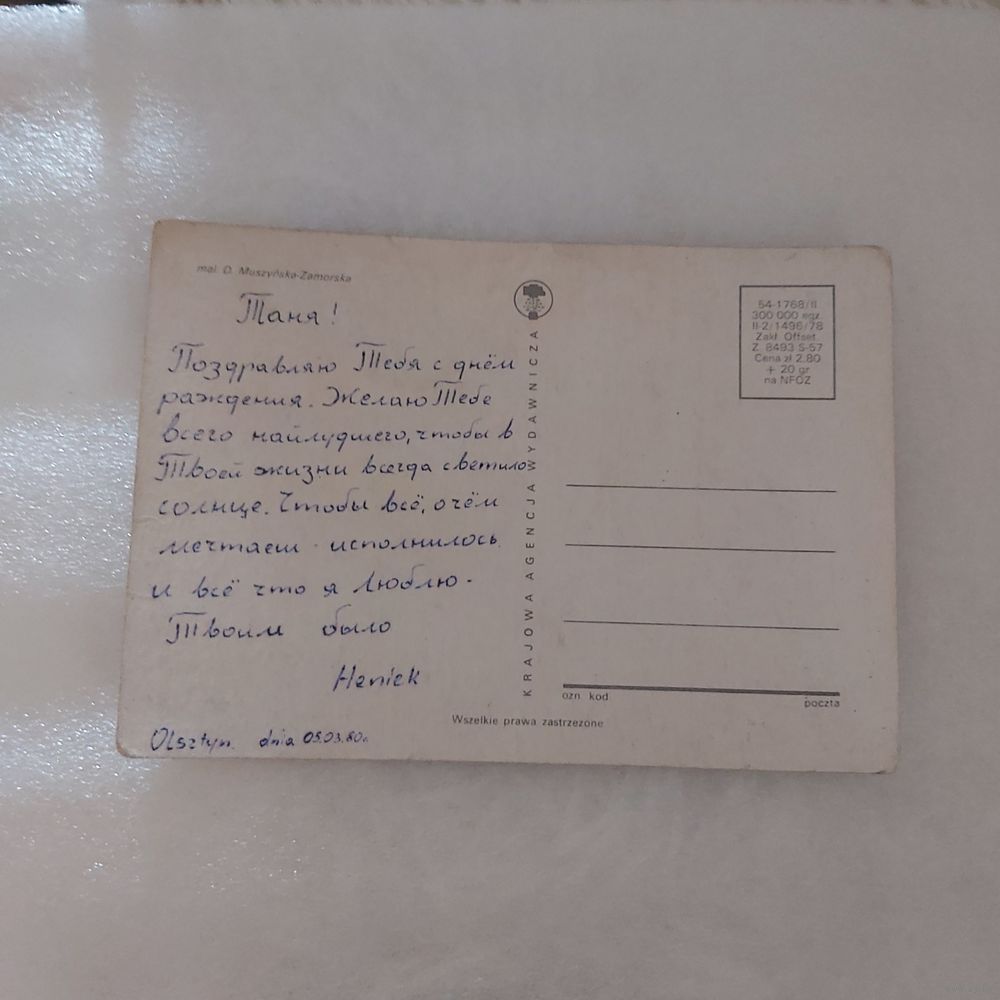 mal. D. Muszyńska-Zamorska
Таня!
Поздравляю Тебя с днём
раждения. Желаю Тебе
всего найлудшего, чтобы в
Твоей жизни всегда светило
солнце. Чтобы всё, о чём
мечтаеш - исполнилось
и всё что я люблю -
Твоим было
Heniek
Olsztyn. dnia 05.03.80r.
KRAJOWA AGENCJA WYDAWNICZA
Wszelkie prawa zastrzeżone
54-1768/II
300 000 egz.
II-2/1496/78
Zakł. Offset.
Z. 8493 S-57
Cena zł 2,80
+ 20 gr
na NFOZ
ozn. kod
poczta